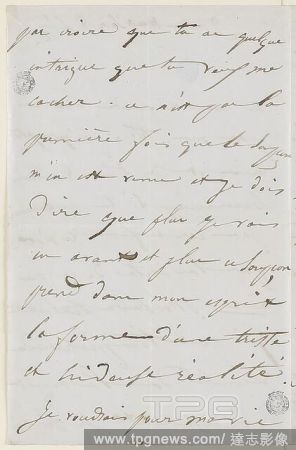 par croire que tu as quelque
intrigue que tu veux me
cacher. ce n'est pas la
première fois que le soupçon
m'en est venu et je dois
dire que plus je vais
en avant et plus ce soupçon
prend dans mon esprit
la forme d'une triste
et hideuse réalité
Je voudrais pour ma vie
TPG
www.tpgnews.com / 達志影像